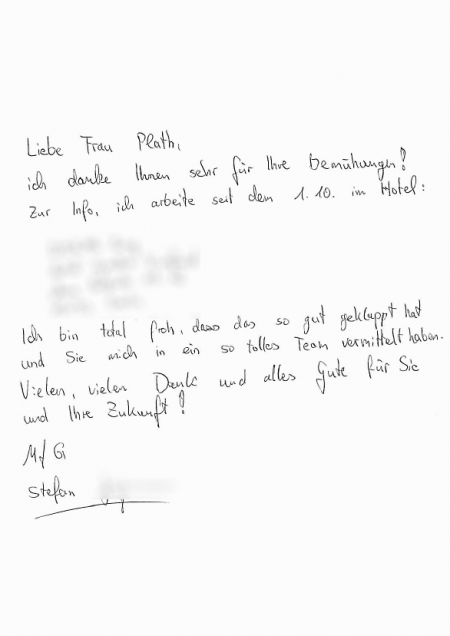 Liebe Frau Plath,
ich danke Ihnen sehr für Ihre Bemühungen!
Zur Info, ich arbeite seit dem 1.10. im Hotel:
Ich bin total froh, dass das so gut geklappt hat
und Sie mich in ein so tolles Team vermittelt haben.
Vielen, vielen Dank und alles Gute für Sie
und Ihre Zukunft!
MfG
Stefan